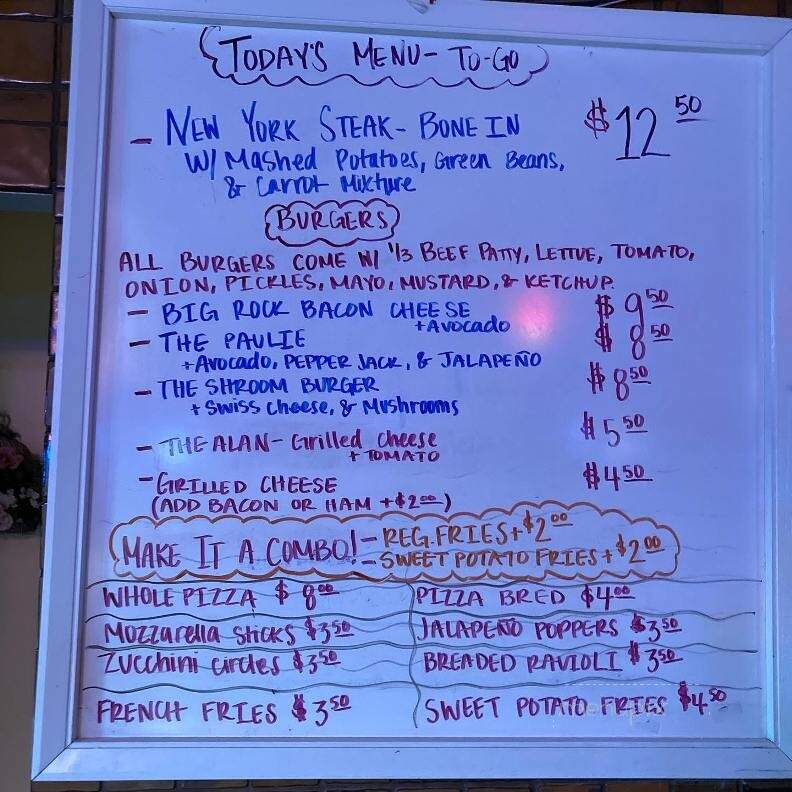 TODAY'S MENU - TO-GO
- NEW YORK STEAK - BONE IN $12 50
W/ MASHED POTATOES, GREEN BEANS,
& CARROT MIXTURE
BURGERS
ALL BURGERS COME W/ 1/3 BEEF PATTY, LETTUE, TOMATO,
ONION, PICKLES, MAYO, MUSTARD, & KETCHUP.
- BIG ROCK BACON CHEESE $9 50
+ AVOCADO
- THE PAULIE $8 50
+ AVOCADO, PEPPER JACK, & JALAPEÑO
- THE SHROOM BURGER $8 50
+ SWISS CHEESE, & MUSHROOMS
- THE ALAN - Grilled cheese $5 50
+ TOMATO
- GRILLED CHEESE $4 50
(ADD BACON OR HAM + $2 00)
MAKE IT A COMBO! - REG. FRIES + $2 00
- SWEET POTATO FRIES + $2 00
WHOLE PIZZA $8 00 PIZZA BRED $4 00
MOZZARELLA STICKS $3 50 JALAPEÑO POPPERS $3 50
ZUCCHINI CIRCLES $3 50 BREADED RAVIOLI $3 50
FRENCH FRIES $3 50 SWEET POTATO FRIES $4 50